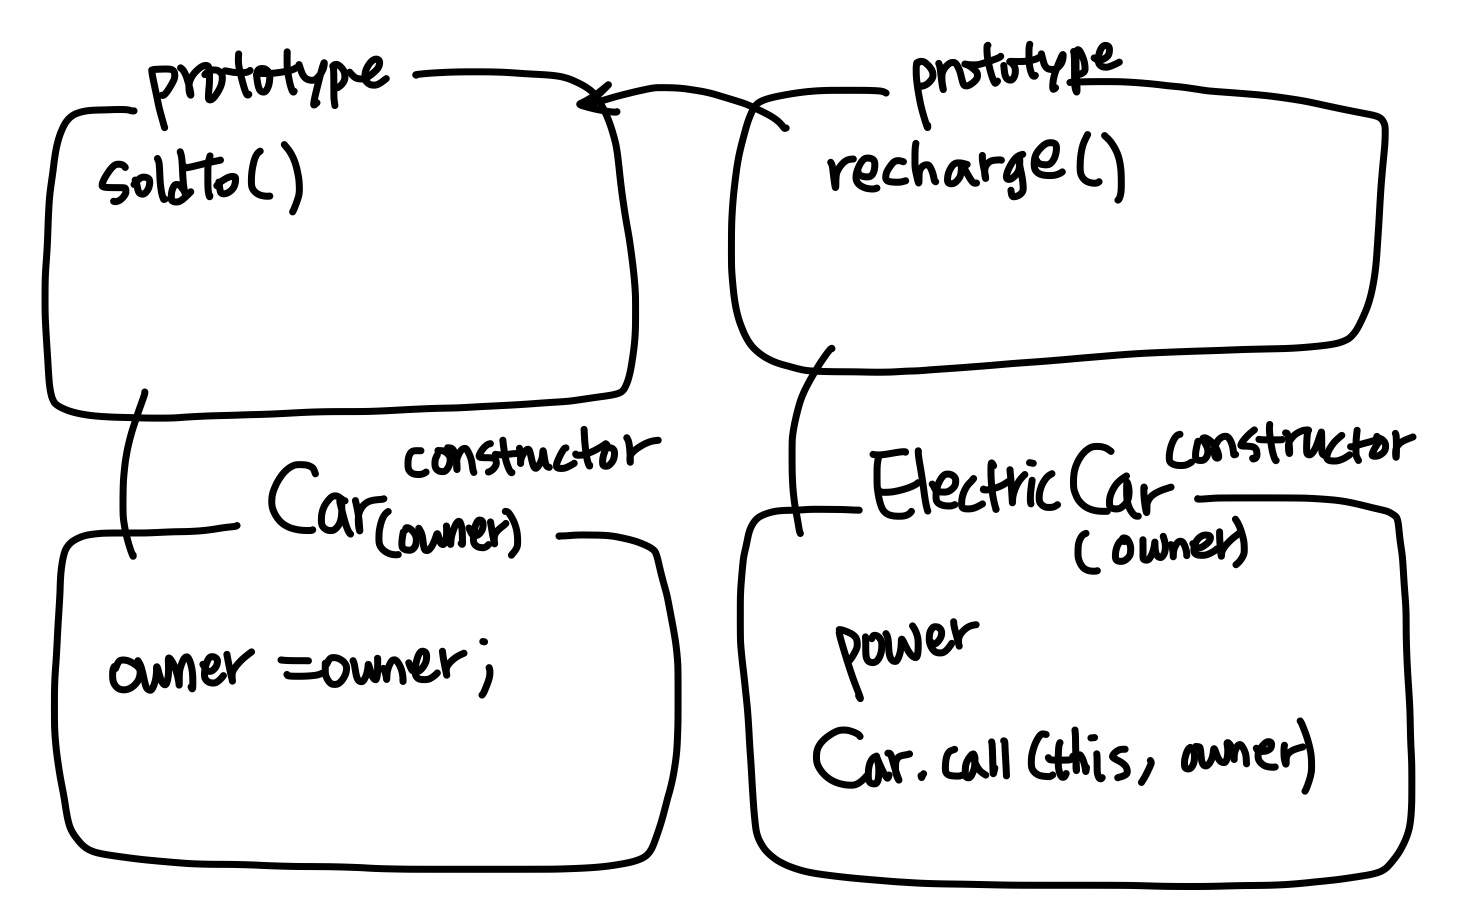 prototype
soldto()
prototype
recharge()
Car constructor
(owner)
owner = owner;
ElectricCar constructor
(owner)
power
Car.call(this, owner)